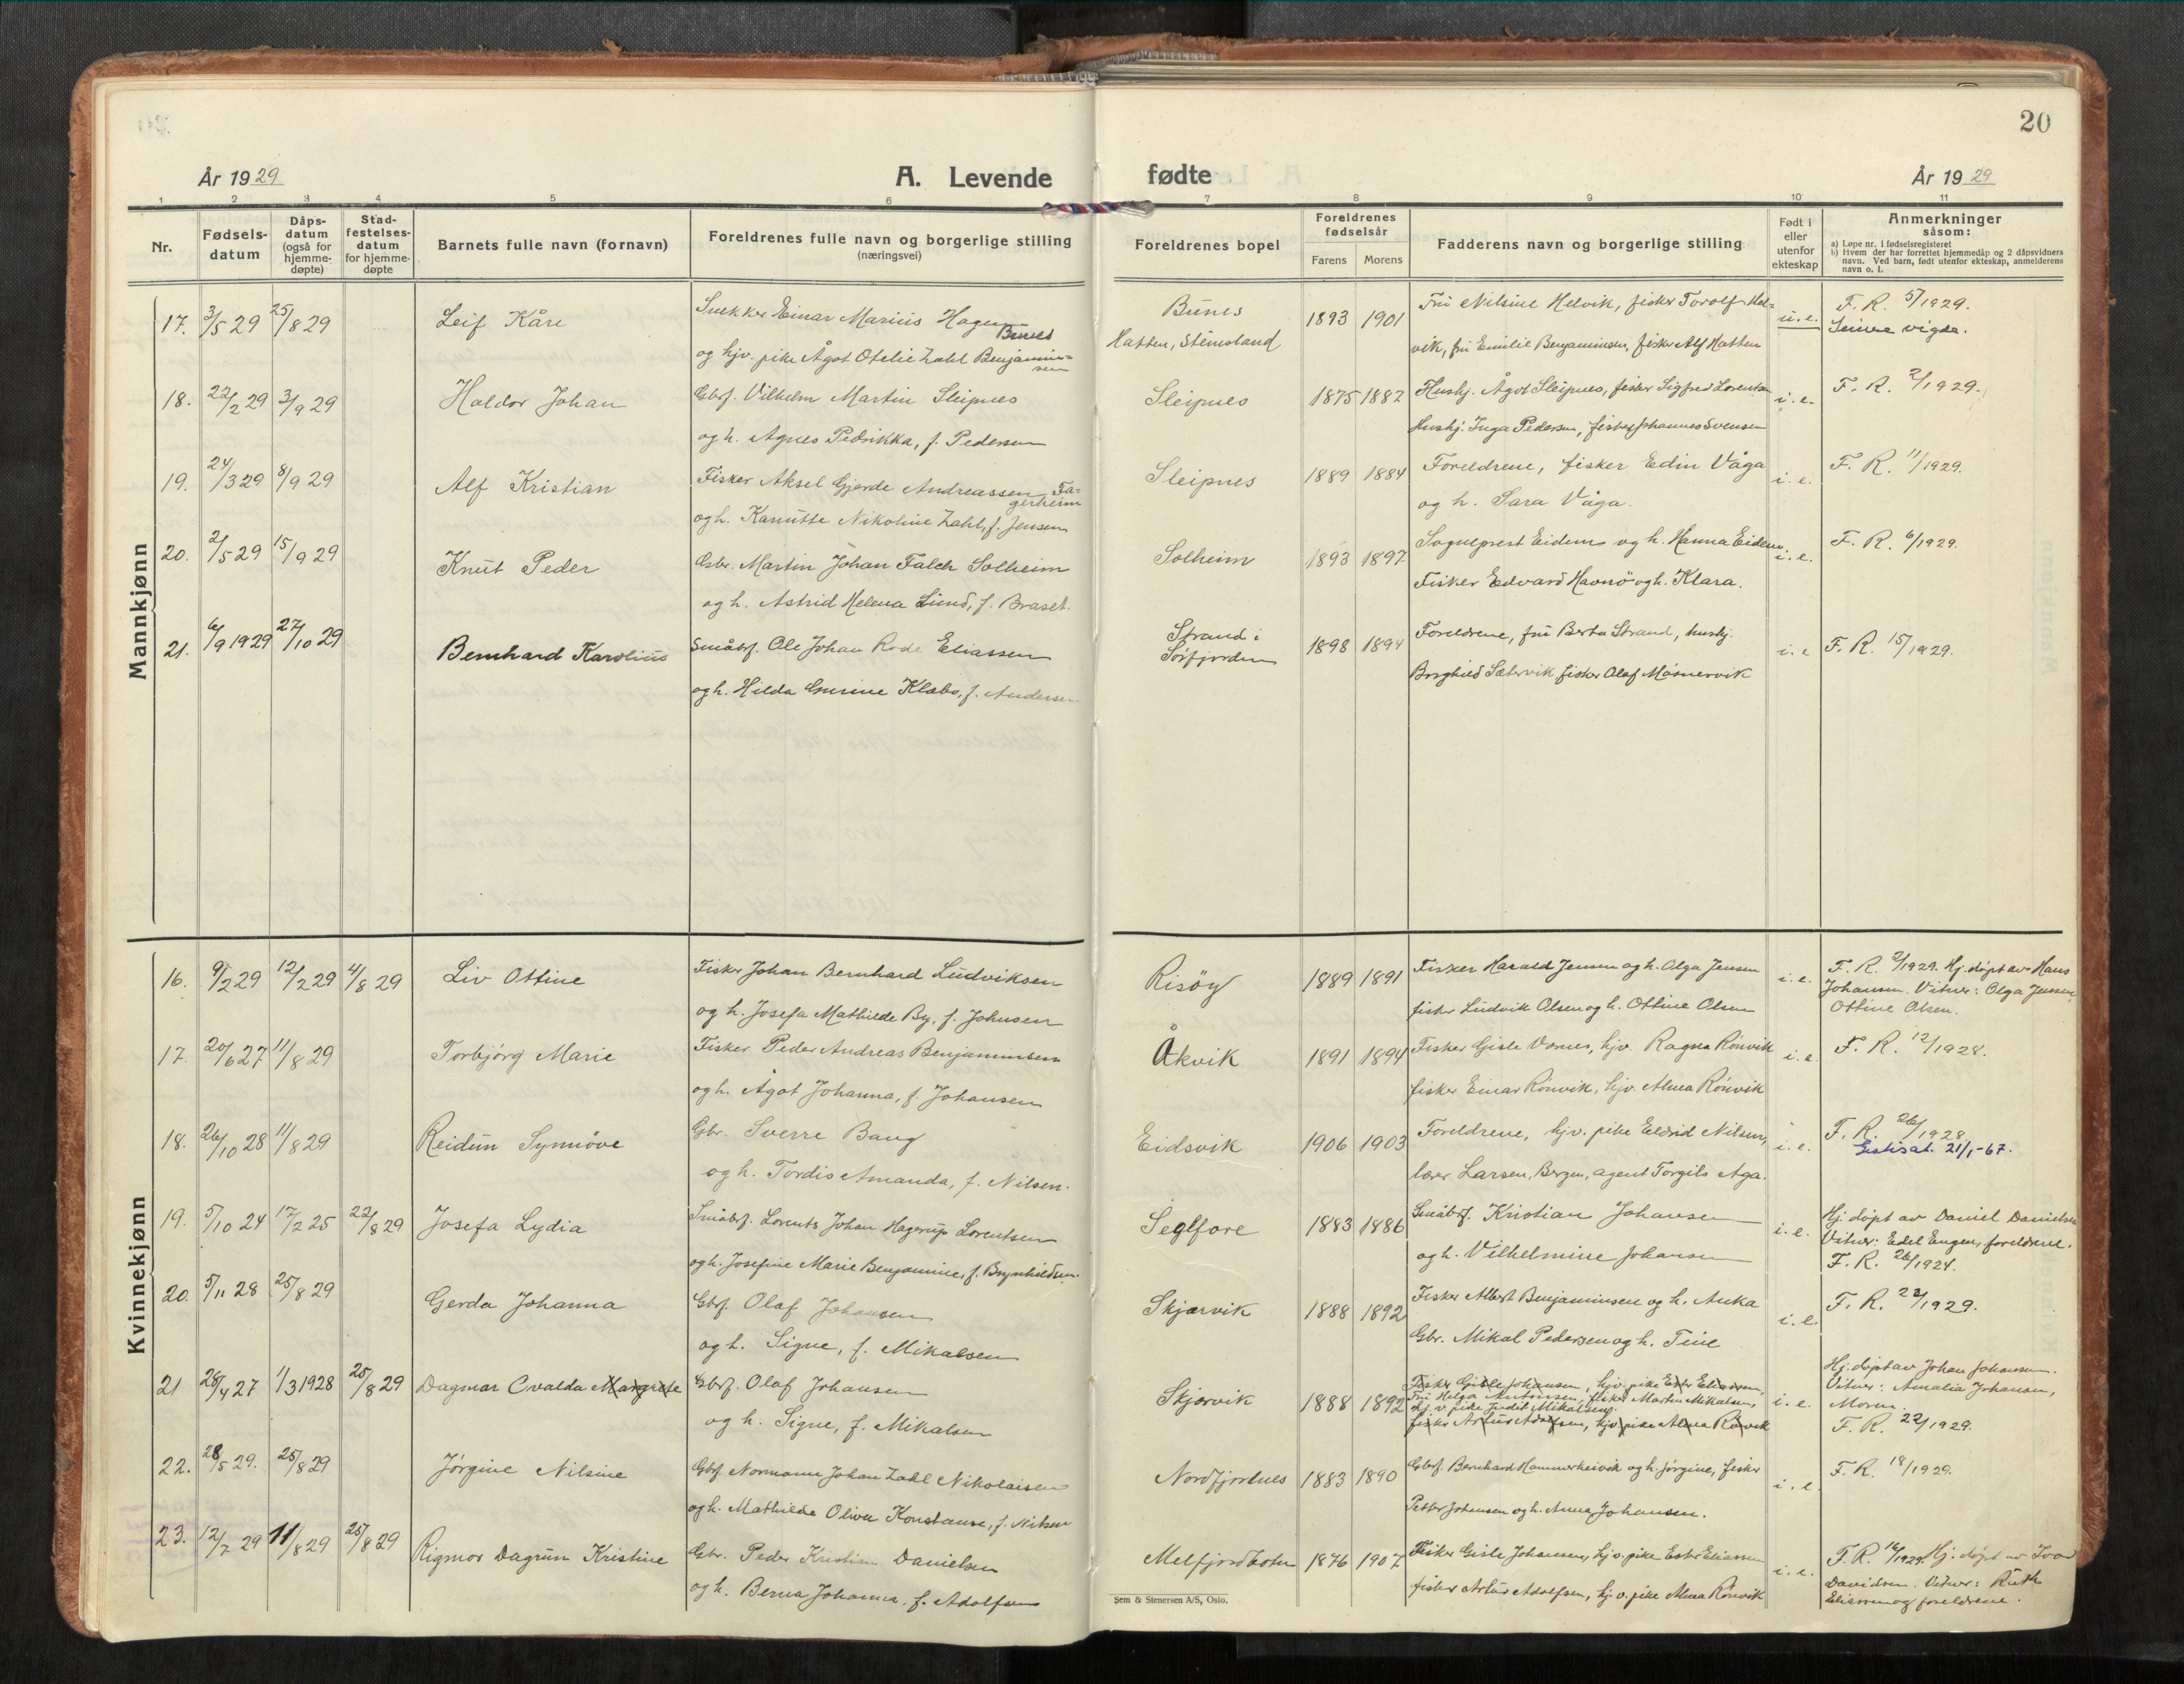 20
År 1929
A. Levende
fødte
År 1929
1 2 3 4 5 6 7 8 9 10 11
Nr.
Fødsels-
datum
Dåps-
datum
(også for
hjemme-
døpte)
Stad-
festelses-
datum
for hjemme-
døpte
Barnets fulle navn (fornavn)
Foreldrenes fulle navn og borgerlige stilling
(næringsvei)
Foreldrenes bopel
Foreldrenes
fødselsår
Farens Morens
Fadderens navn og borgerlige stilling
Født i
eller
utenfor
ekteskap
Anmerkninger
såsom:
a) Løpe nr. i fødselsregisteret
b) Hvem der har forrettet hjemmedåp og 2 dåpsvidners
navn. Ved barn, født utenfor ekteskap, anmelderens
navn o. l.
Mannkjønn
17. 3/5 29 25/8 29 Leif Kåre Snekker Einar Marius Hagen Bunes Bunes 1893 1901 Fru Nilsine Helvik, fisker Torolf Hel- u.e. F. R. 5/1929.
og hjv. pike Ågot Otelie Zahl Benjamin-
sen Hatten, Steinsland vik, fru Emilie Benjaminsen, fisker Alf Hatten Senere vigde.
18. 22/2 29 3/9 29 Haldor Johan Gbrf. Vilhelm Martin Sleipnes Sleipnes 1875 1882 Hushj. Ågot Sleipnes, fisker Sigfred Lorentsen i.e. F. R. 2/1929.
og h. Agnes Pedrikka, f. Pedersen Hushj. Inga Pedersen, fisker Johannes Svensen
19. 24/3 29 8/9 29 Alf Kristian Fisker Aksel Gjerde Andreassen, Fa-
gerheim Sleipnes 1889 1884 Foreldrene, fisker Edin Våga i.e. F. R. 11/1929.
og h. Kanutte Nikoline Zahl, f. Jensen og h. Sara Våga.
20. 2/5 29 15/9 29 Knut Peder Gbr. Martin Johan Falch Solheim Solheim 1893 1897 Sogneprest Eidem og h. Hanna Eidem i.e. F. R. 6/1929.
og h. Astrid Helena Lund, f. Braset. Fisker Edvard Havnö og h. Klara.
21. 6/9 1929 27/10 29 Bernhard Karolius Småbrf. Ole Johan Rode Eliassen Strand i
Sørfjorden 1898 1894 Foreldrene, fru Berta Strand, hushj. i.e F. R. 15/1929.
og h. Hilda Klæbo, f. Andersen Borghild Sætervik, fisker Olaf Måsnervik
Kvinnekjønn
16. 9/2 29 12/2 29 4/8 29 Liv Ottine Fisker Johan Bernhard Ludviksen Risöy 1889 1891 Fisker Harald Jensen og h. Olga Jensen i.e. F. R. 2/1929. Hj. døpt av Hans
og h. Josefa Mathilde By, f. Johnsen fisker Ludvik Olsen og h. Ottine Olsen Johansen. Vitner: Olga Jensen,
Ottine Olsen.
17. 20/6 27 11/8 29 Torbjörg Marie Fisker Peder Andreas Benjaminsen Åkvik 1891 1894 Fisker Gisle Vornes, hjv. Ragna Rönvik i.e. F. R. 12/1928.
og h. Ågot Johanna, f. Johansen fisker Einar Rönvik, hjv. Alma Rönvik
18. 26/10 28 11/8 29 Reidun Synnöve Gbr. Sverre Bang Eidsvik 1906 1903 Foreldrene, hjv. pike Eldrid Nilsen, i.e. F. R. 26/1928
og h. Tordis Amanda, f. Nilsen. lærer Larsen, Bergen, agent Torgils Aga. 21/1-67.
19. 5/10 24 17/2 25 22/8 29 Josefa Lydia Småbrf. Lorents Johan Hagerup Lorentsen Seglfore 1883 1886 Småbrf. Kristian Johansen i.e. Hj. døpt av Daniel Danielsen
og h. Josefine Marie Benjamine, f. Brynhildsen. og h. Vilhelmine Johansen Vitner: Edel Engen, foreldrene.
F. R. 26/1924.
20. 5/11 28 25/8 29 Gerda Johanna Gbrf. Olaf Johansen Skjærvik 1888 1892 Fisker Albert Benjaminsen og h. Anka i.e. F. R. 22/1929.
og h. Signe, f. Mikalsen Gbr. Mikal Pedersen og h. Tine
21 28/4 27 1/3 1928 25/8 29 Dagmar Ovalda Margrete Gbrf. Olaf Johansen Skjærvik 1888 1892 Fisker Gisle Johansen, hjv. pike Ester Eliassen, i.e. Hj. døpt av Johan Johansen.
og h. Signe, f. Mikalsen Fru Helga Antonsen, fisker Martin Mikalsen, Vitner: Amalia Johansen,
hj. v. pike Judit Mikalsen. Moren.
fisker Artur Adolfsen, hjv. pike Alma Rönvik F. R. 22/1929.
22. 28/5 29. 25/8 29 Jörgine Nilsine Gbrf. Normann Johan Zahl Nikolaisen Nordfjordnes 1883 1890 Gbrf. Bernhard Hammerheivik og h. Jörgine, fisker i.e. F. R. 18/1929.
og h. Mathilde Olivia Konstanse, f. Nilsen Petter Johansen og h. Anna Johansen.
23. 12/7 29 11/8 29 25/8 29 Rigmor Dagrun Kristine Gbr. Peder Kristian Danielsen Melfjordbotn 1876 1907 Fisker Gisle Johansen, hj.v. pike Ester Eliassen i.e. F. R. 16/1929. Hj. døpt av Ivar
og h. Berna Johanna, f. Adolfsen fisker Artur Adolfsen, hj.v. pike Alma Rönvik Davidsen. Vitner: Ruth
Eliassen og foreldrene.
Sem & Stenersen A/S, Oslo.